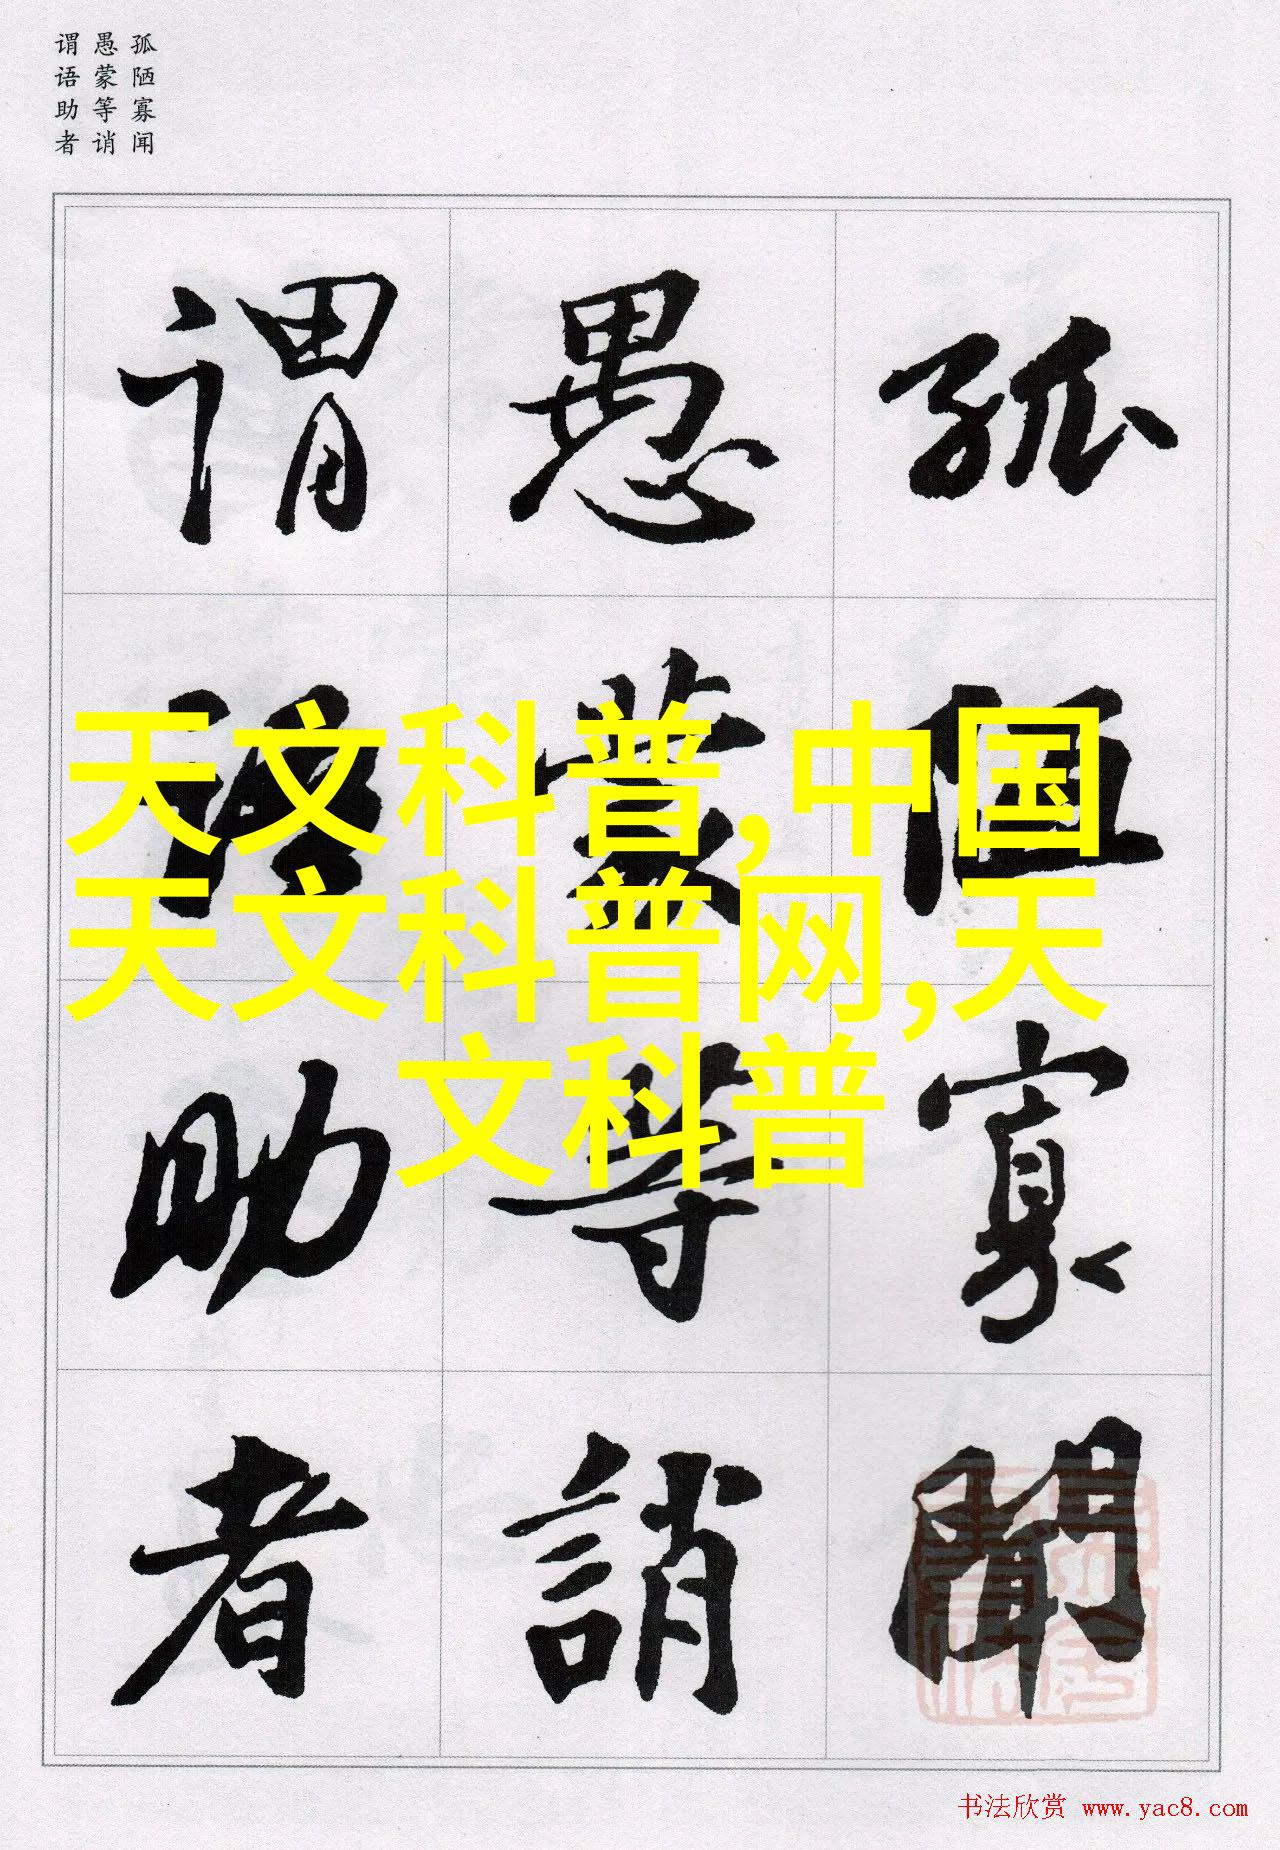 孤陋寡闻
愚蒙等诮
谓语助者
孤陋寡聞
愚蒙等誚
谓语助者
天文科普,中国
天文科普网,天
文科普
书法欣赏 www.yac8.com